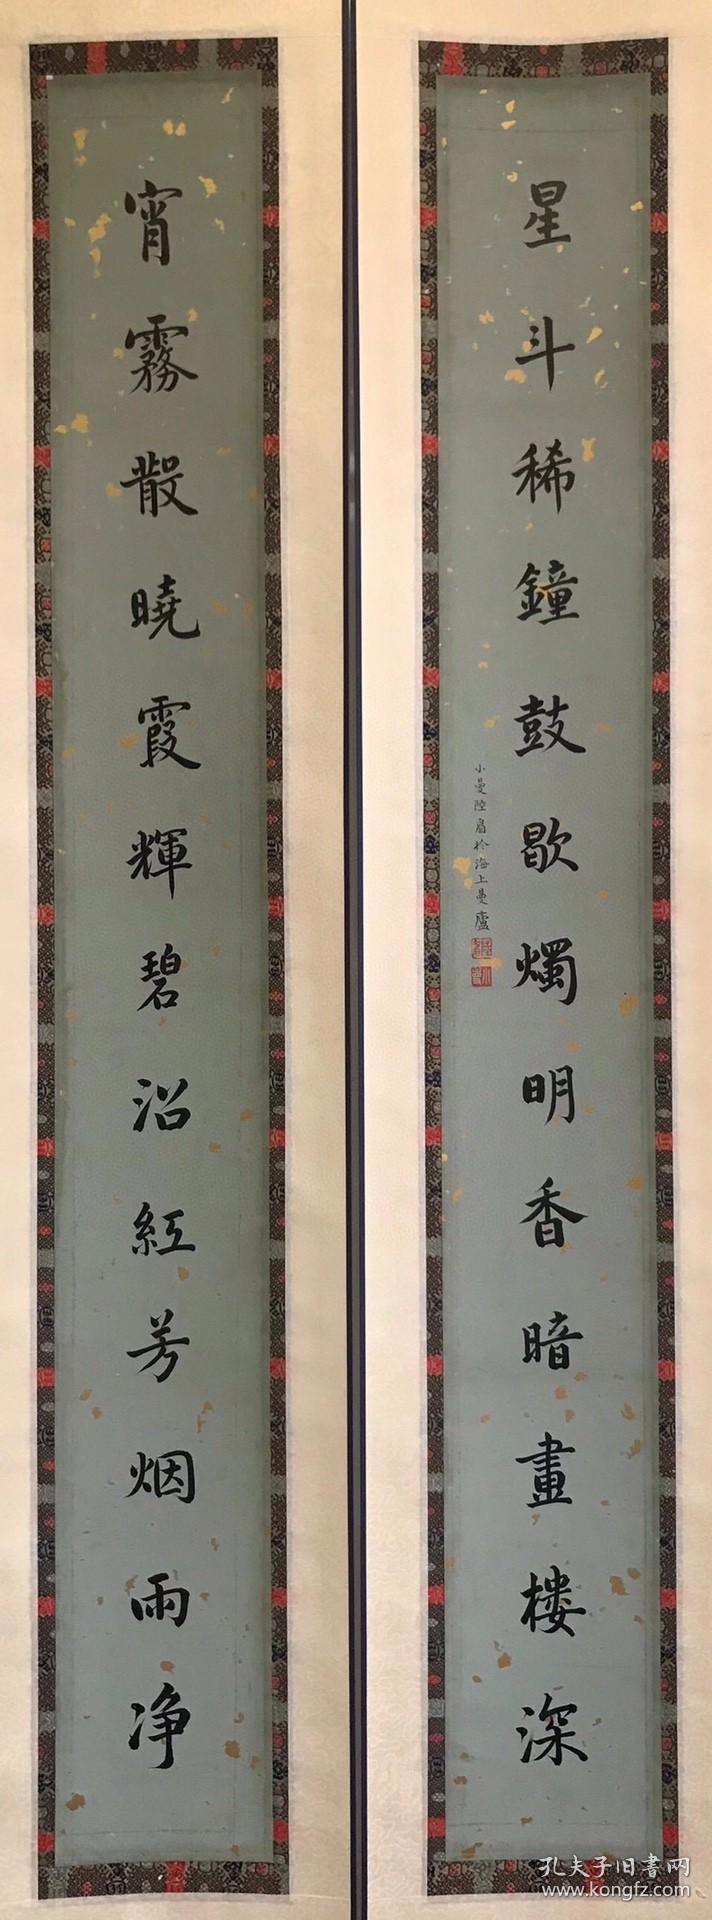 星斗稀鐘鼓歇燭明香暗畫楼深
小曼陸眉於海上曼廬
宵霧散曉霞輝碧沼紅芳烟雨净
孔夫子旧書网
www.kongfz.com